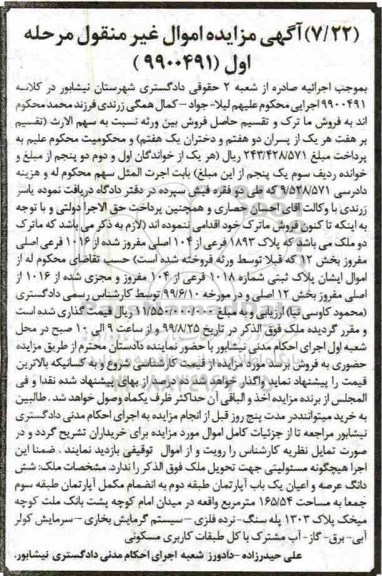 (۷/۲۲) آگهی مزایده اموال غیر منقول مرحله
اول (۹۹۰۰۴۹۱)
بموجب اجرائیه صادره از شعبه ۲ حقوقی دادگستری شهرستان نیشابور در کلاسه
۹۹۰۰۴۹۱ اجرایی محکوم علیهم لیلا- جواد – کمال همگی زرندی فرزند محمد محکوم
اند به فروش ما ترک و تقسیم حاصل فروش بین ورثه نسبت به سهم الارث (تقسیم
بر هفت هر یک از پسران دو هفتم و دختران یک هفتم) و محکومیت محکوم علیم به
پرداخت مبلغ ۲۴۳/۴۲۸/۵۷۱ ریال (هر یک از خواندگان اول و دوم دو پنجم از مبلغ و
خوانده ردیف سوم یک پنجم از این مبلغ) بابت اجرت المثل سهم محکوم له و هزینه
دادرسی ۹/۵۲۸/۵۷۱ که طی دو فقره فیش سپرده در دفتر دادگاه دریافت نموده یاسر
زرندی با وکالت آقای احسان حصاری و همچنین پرداخت حق الاجرا دولتی و با توجه
به اینکه تا کنون فروش ماترک خود اقدامی ننموده اند (لازم به ذکر می باشد که ماترک
دو ملک می باشد که پلاک ۱۸۹۳ فرعی از ۱۰۴ اصلی مفروز شده از ۱۰۱۶ فرعی اصلی
مفروز بخش ۱۲ که قبلا توسط ورثه فروخته شده است) حسب تقاضای محکوم له از
اموال ایشان پلاک ثبتی شماره ۱۰۱۸ فرعی از ۱۰۴ مفروز و مجزی شده از ۱۰۱۶ از
اصلی مفروز بخش ۱۲ اصلی و در مورخه ۹۹/۶/۱۰ توسط کارشناس رسمی دادگستری
(محمود کاوسی نیا) ارزیابی و به مبلغ ۱۱/۵۵۰/۰۰۰/۰۰۰ ریال قیمت گذاری شده است
و مقرر گردیده ملک فوق الذکر در تاریخ ۹۹/۸/۲۵ و از ساعت ۹ الی ۱۰ صبح در محل
شعبه اول اجرای احکام مدنی نیشابور با حضور نماینده دادستان محترم از طریق مزایده
حضوری به فروش برسد مورد مزایده از قیمت کارشناسی شروع و به کسانیکه بالاترین
قیمت را پیشنهاد نماید واگذار خواهد شد ده درصد از بهای پیشنهاد شده نقدا و فی
المجلس از برنده مزایده اخذ و الباقی آن حداکثر ظرف یکماه وصول خواهد شد . طالبین
به خرید میتوانند در مدت پنج روز قبل از انجام مزایده به اجرای احکام مدنی دادگستری
نیشابور مراجعه تا از جزئیات کامل اموال مورد مزایده برای خریداران تشریح گردد و در
صورت تمایل نظریه کارشناس را رویت و از اموال توقیفی بازدید نمایند . ضمنا این
اجرا هیچگونه مسئولیتی جهت تحویل ملک فوق الذکر را ندارد. مشخصات ملک: شش
دانگ عرصه و اعیان یک باب آپارتمان طبقه دوم به انضمام مکمل آپارتمان طبقه سوم
جمعا به مساحت ۱۶۵/۵۴ مترمربع واقعه در میدان امام کوچه پشت بانک ملت کوچه
میخک پلاک ۱۳۰۳ پله سنگ- نرده فلزی – سیستم گرمایش بخاری – سرمایش کولر
آبی- برق- گاز- آب مشترک با کل طبقات کاربری مسکونی
علی حیدرزاده – دادورز شعبه اجرای احکام مدنی دادگستری نیشابور.